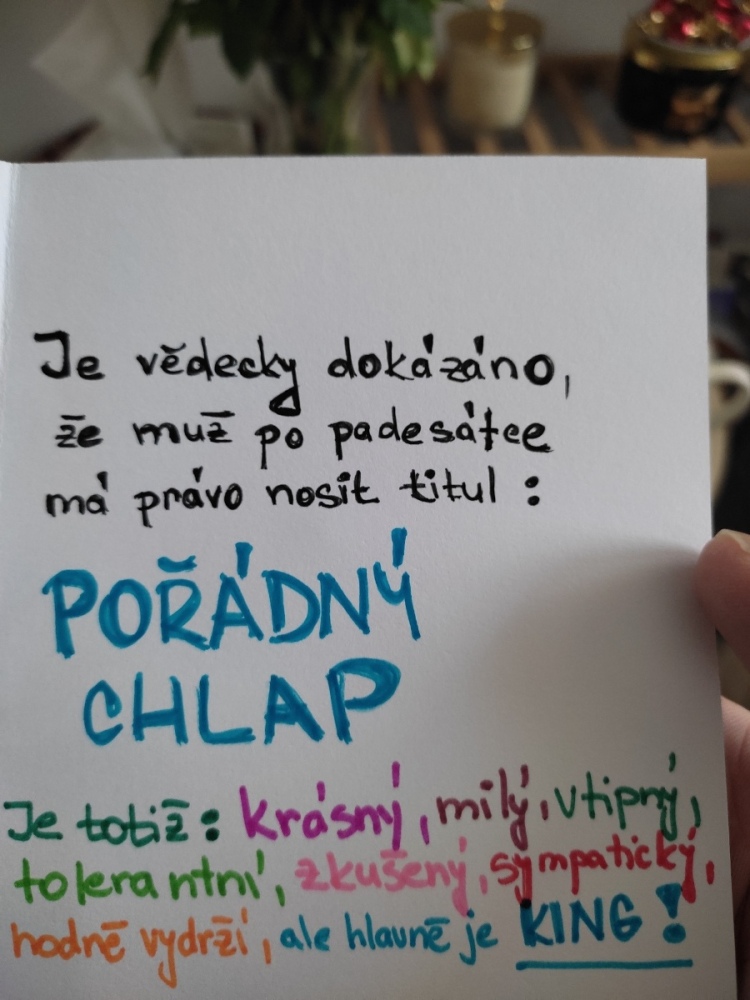 Je vědecky dokázáno,
že muž po padesátce
má právo nosit titul :
POŘÁDNÝ
CHLAP
Je totiž : krásný, milý, vtipný,
tolerantní, zkušený, sympatický,
hodně vydrží, ale hlavně je KING !